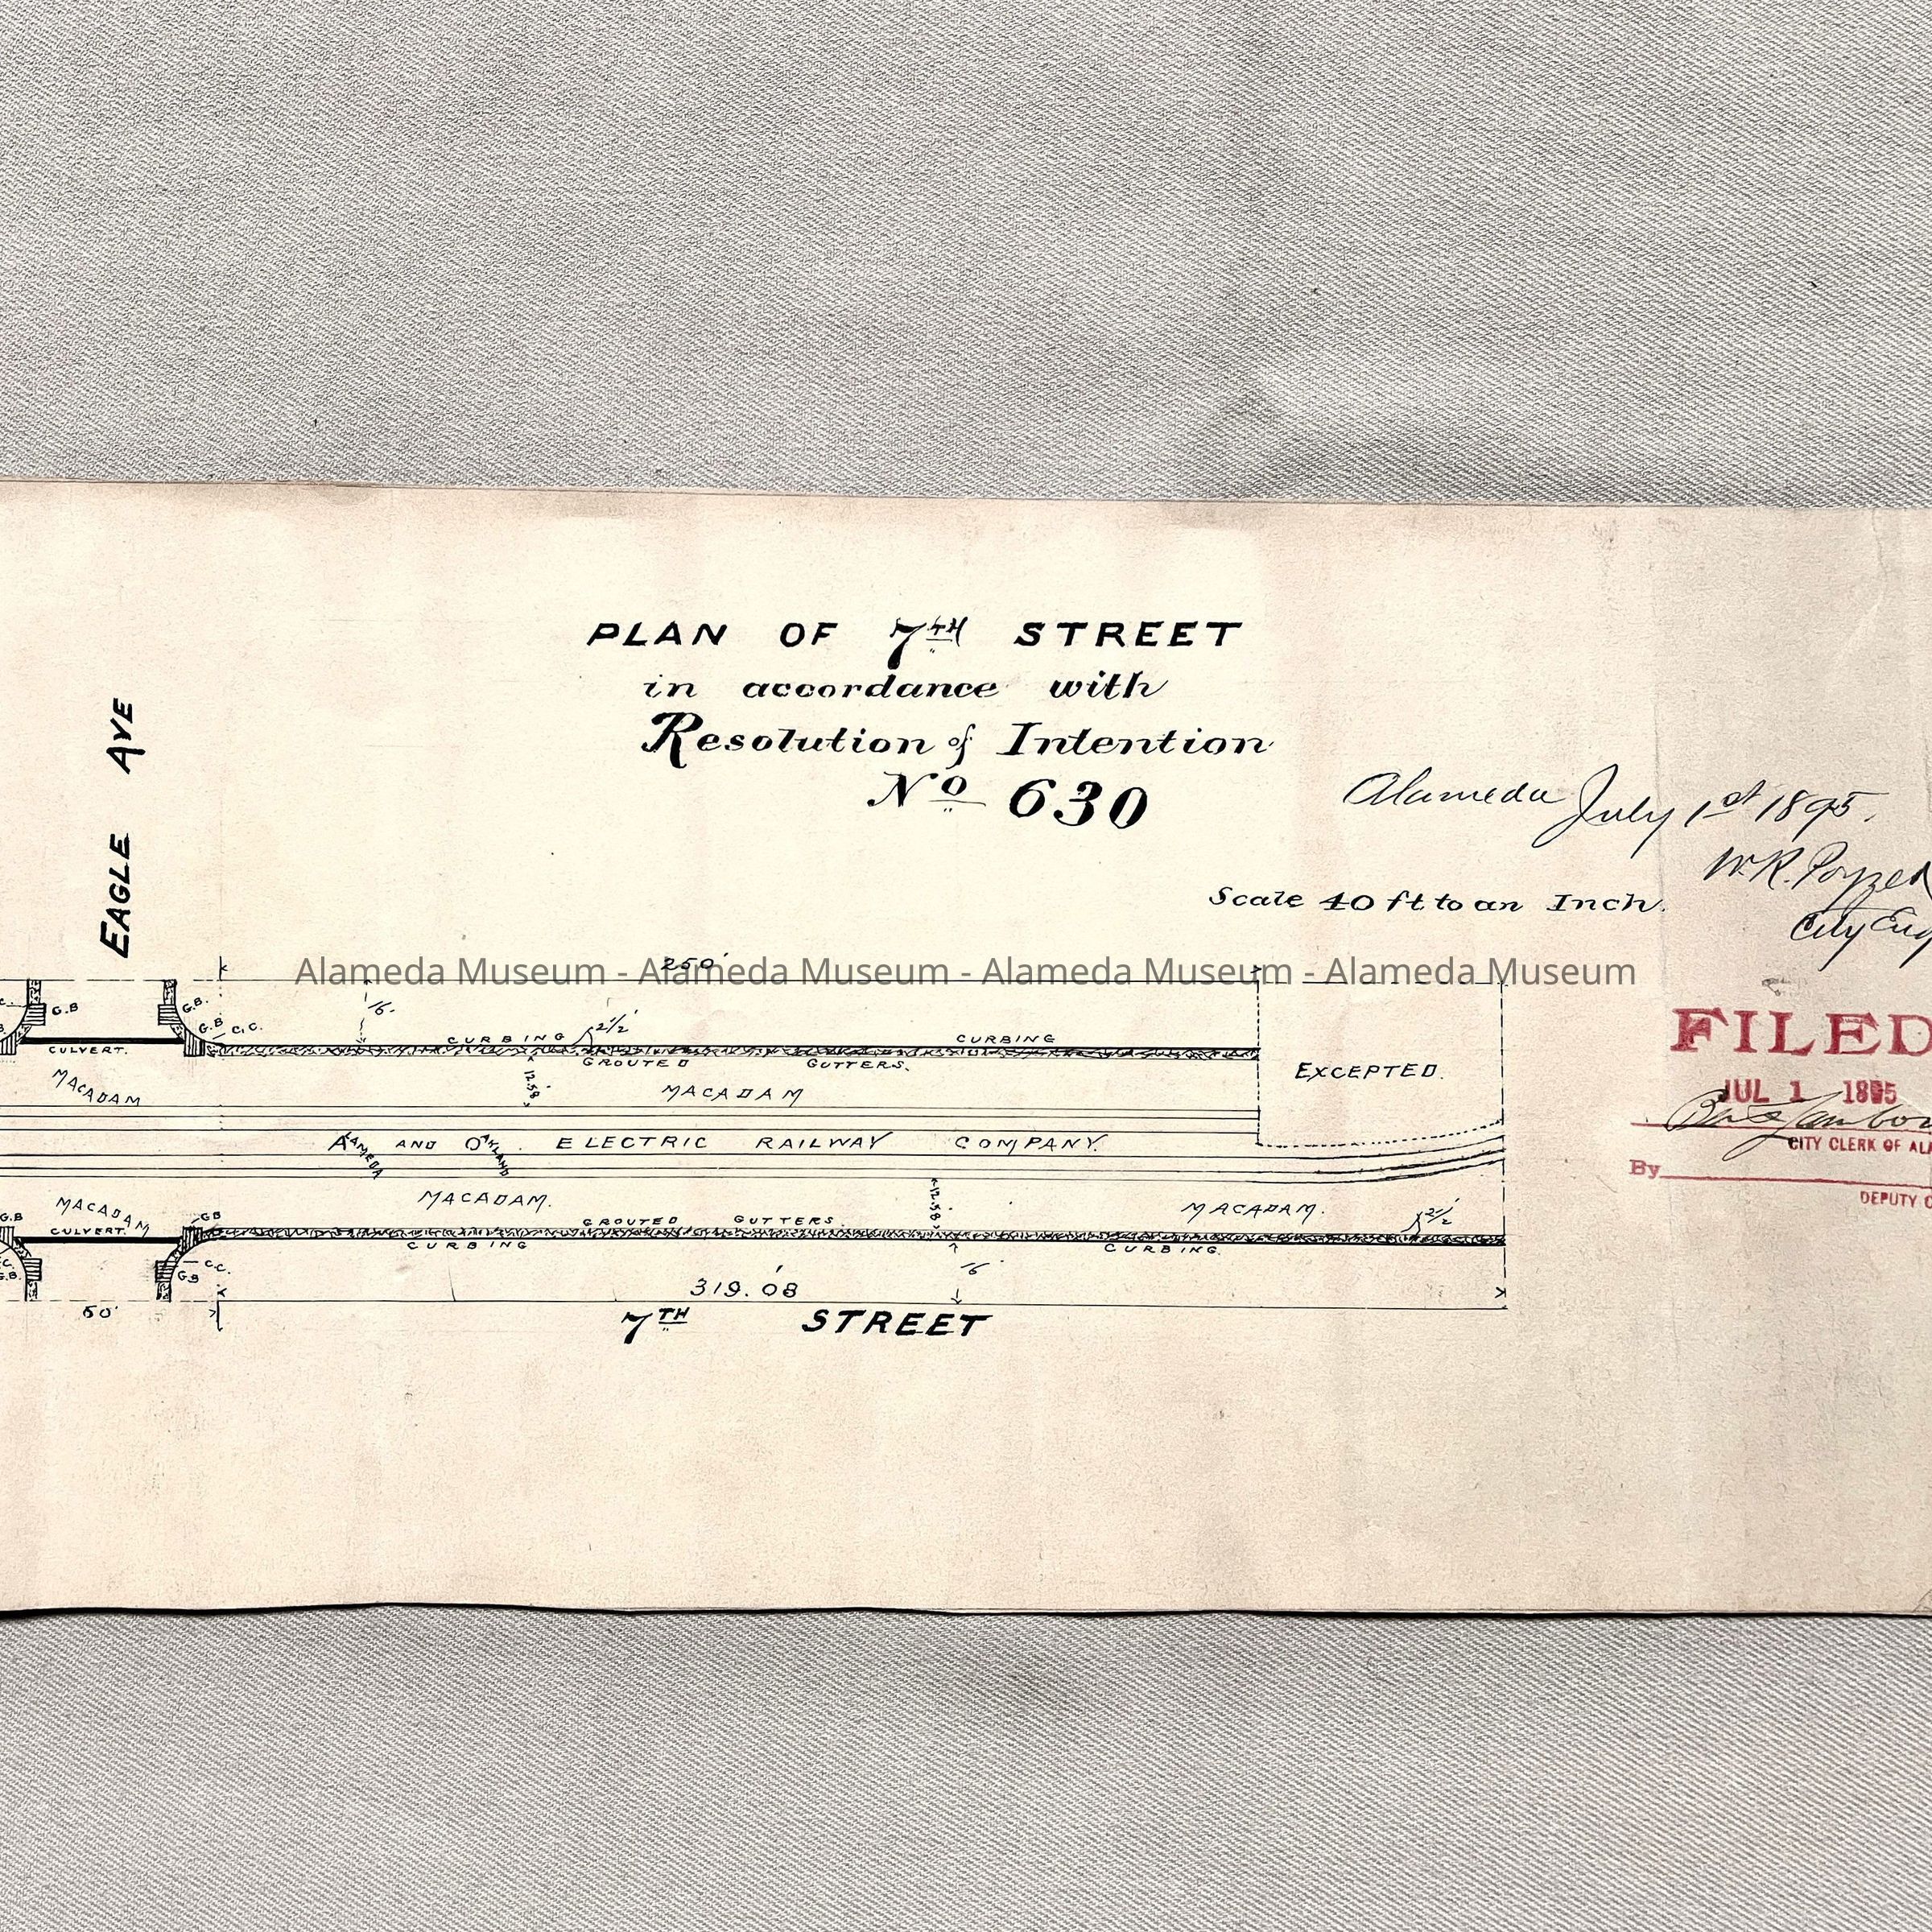 PLAN OF 7TH STREET
in accordance with
Resolution of Intention
No 630
Alameda July 1st 1895.
W.R.
City Eng
Scale 40 ft to an Inch.
EAGLE AVE
Alameda Museum - Alameda Museum - Alameda Museum - Alameda Museum
250'
G.B
G.B.
G.B
C.C.
CULVERT.
16.
CURBING
2 1/2'
CURBING
GROUTED GUTTERS.
12.58
MACADAM
MACADAM
EXCEPTED.
ALAMEDA AND OAKLAND ELECTRIC RAILWAY COMPANY.
FILED
JUL 1 1895
CITY CLERK OF ALA
By
DEPUTY C
MACADAM
MACADAM.
12.58
MACADAM.
2 1/2'
G.B
CULVERT.
GB
GROUTED GUTTERS.
CURBING
CURBING.
C.
G.B.
GB
C.C.
16
60'
319.08'
7TH STREET